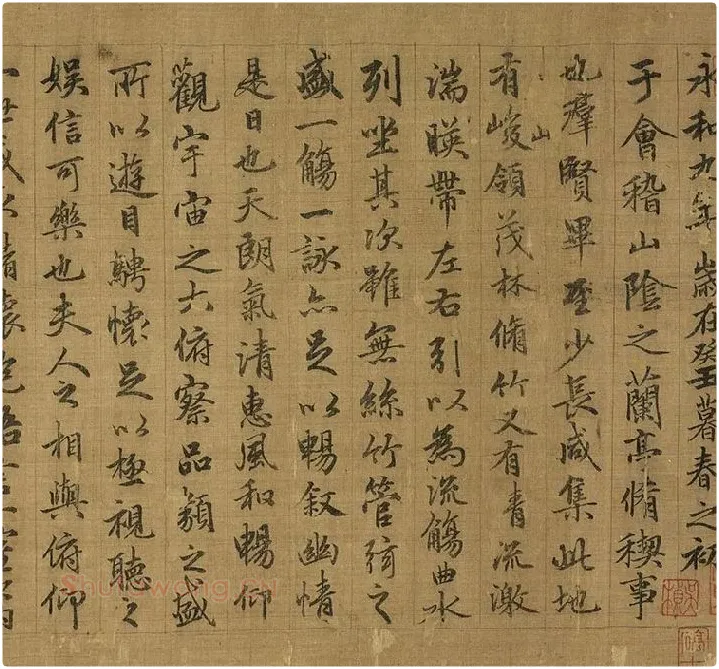 永和九年歲在癸丑暮春之初
于會稽山陰之蘭亭脩稧事
也羣賢畢至少長咸集此地
有山峻領茂林脩竹又有清流激
湍暎帶左右引以為流觴曲水
列坐其次雖無絲竹管弦之
盛一觴一詠亦足以暢敘幽情
是日也天朗氣清惠風和暢仰
觀宇宙之大俯察品類之盛
所以遊目騁懷足以極視聽之
娛信可樂也夫人之相與俯仰
一世或取諸懷抱悟言一室之內